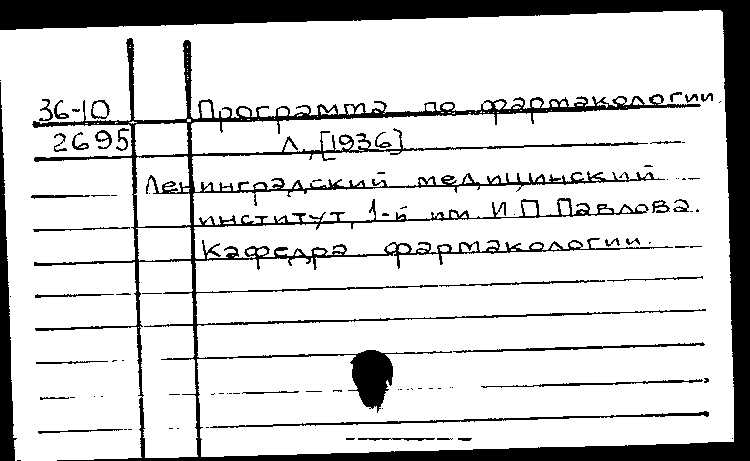 36-10 Программа по фармакологии.
2695 Л., [1936]
Ленинградский медицинский
институт, 1-й им. И.П. Павлова.
Кафедра фармакологии.